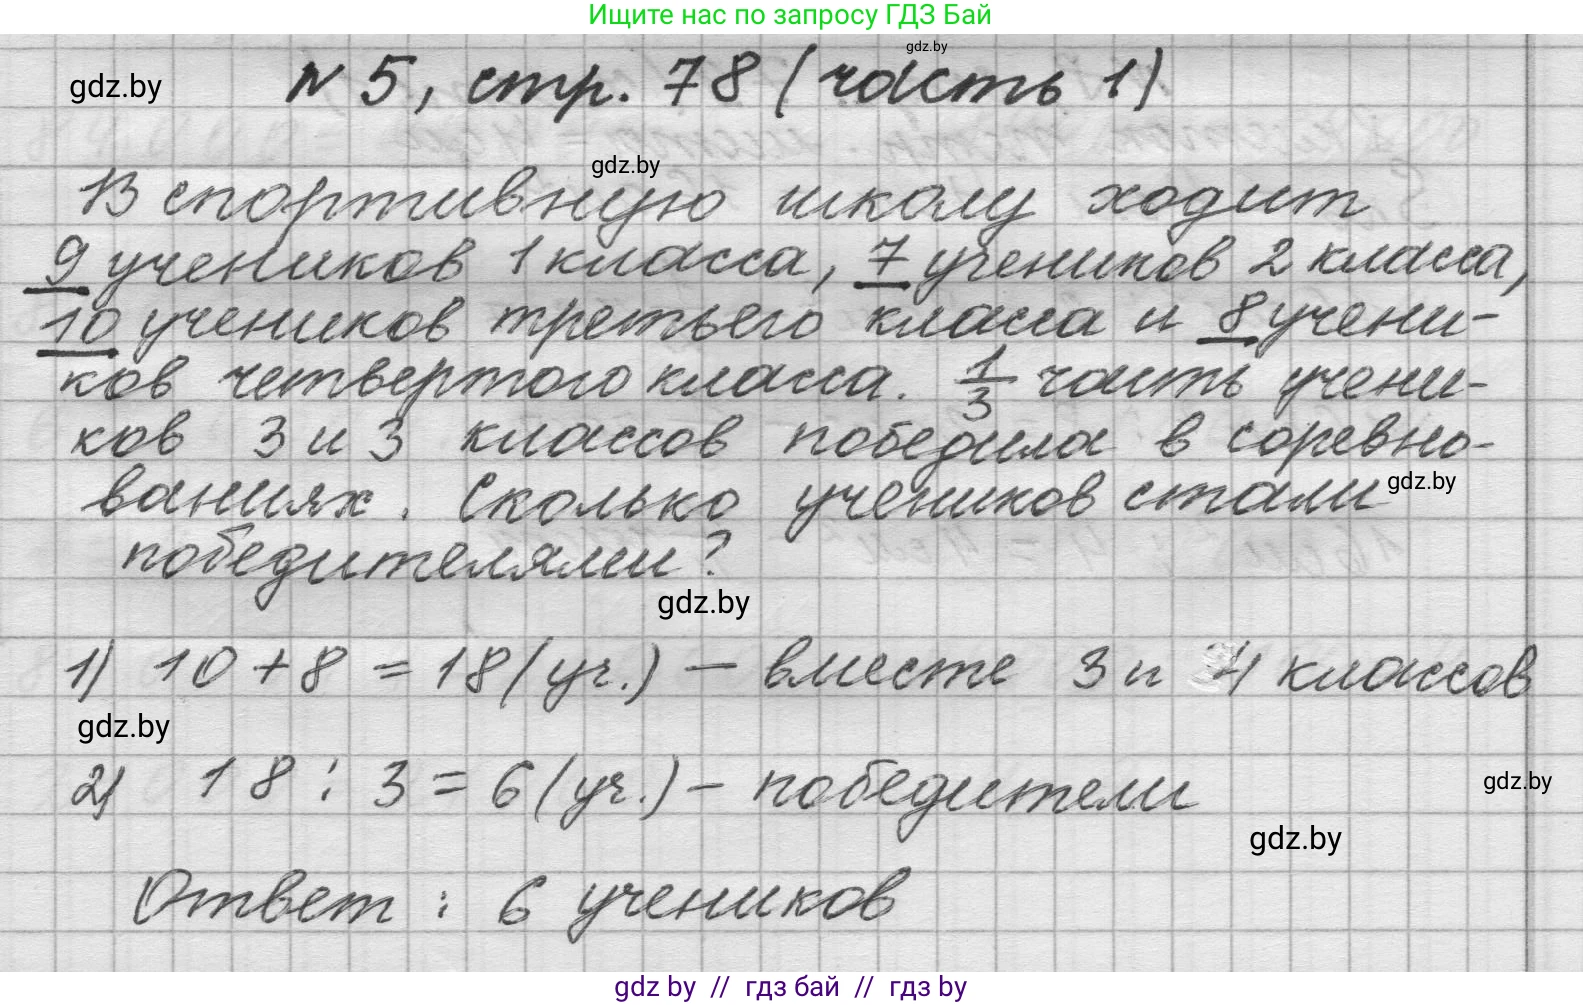 Ищите нас по запросу ГДЗ Бай
gdz.by
gdz.by N 5, стр. 78 (часть 1)
gdz.by
В спортивную школу ходит
9 учеников 1 класса, 7 учеников 2 класса,
10 учеников третьего класса и 8 учени-
ков четвертого класса. 1/3 часть учени-
ков 3 и 3 классов победила в соревно-
ваниях. Сколько учеников стали gdz.by
победителями?
gdz.by
1) 10 + 8 = 18 (уч.) – вместе 3 и 4 классов
gdz.by
2) 18 : 3 = 6 (уч.) – победители
gdz.by
gdz.by
Ответ : 6 учеников
gdz by // гдз бай // гдз by